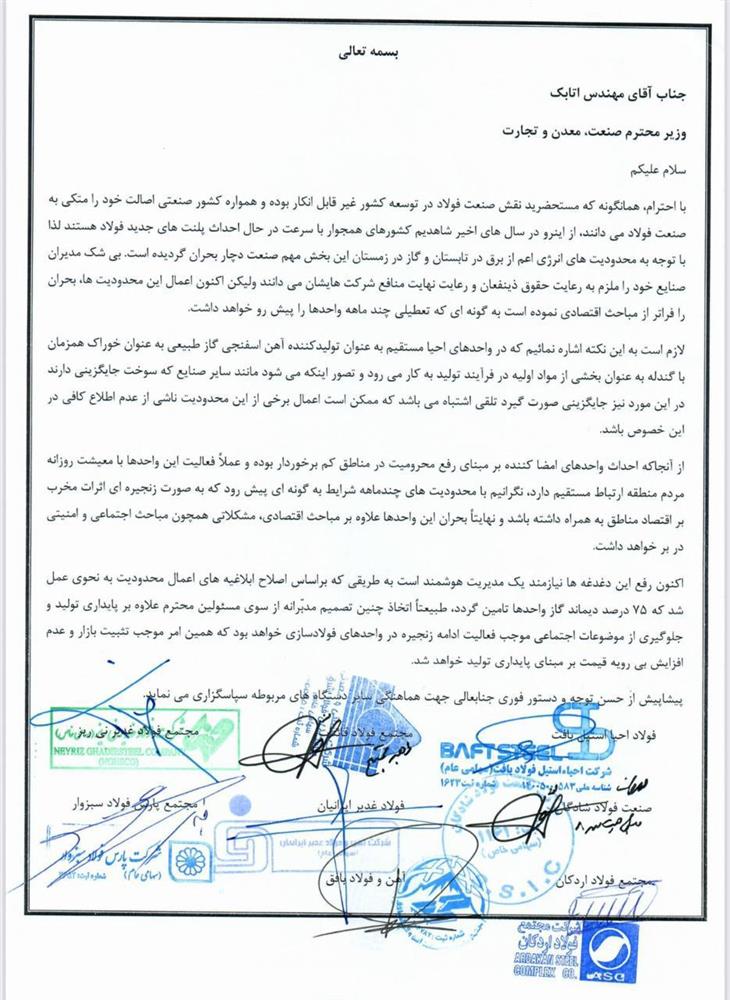 بسمه تعالی
جناب آقای مهندس اتابک
وزیر محترم صنعت، معدن و تجارت
سلام علیکم
با احترام، همانگونه که مستحضرید نقش صنعت فولاد در توسعه کشور غیر قابل انکار بوده و همواره کشور صنعتی اصالت خود را متکی به
صنعت فولاد می دانند، از اینرو در سال های اخیر شاهدیم کشورهای همجوار با سرعت در حال احداث پلنت های جدید فولاد هستند لذا
با توجه به محدودیت های انرژی اعم از برق در تابستان و گاز در زمستان این بخش مهم صنعت دچار بحران گردیده است. بی شک مدیران
صنایع خود را ملزم به رعایت حقوق ذینفعان و رعایت نهایت منافع شرکت هایشان می دانند ولیکن اکنون اعمال این محدودیت ها، بحران
را فراتر از مباحث اقتصادی نموده است به گونه ای که تعطیلی چند ماهه واحدها را پیش رو خواهد داشت.
لازم است به این نکته اشاره نمائیم که در واحدهای احیا مستقیم به عنوان تولیدکننده آهن اسفنجی گاز طبیعی به عنوان خوراک همزمان
با گندله به عنوان بخشی از مواد اولیه در فرآیند تولید به کار می رود و تصور اینکه می شود مانند سایر صنایع که سوخت جایگزینی دارند
در این مورد نیز جایگزینی صورت گیرد تلقی اشتباه می باشد که ممکن است اعمال برخی از این محدودیت ناشی از عدم اطلاع کافی در
این خصوص باشد.
از آنجاکه احداث واحدهای امضا کننده بر مبنای رفع محرومیت در مناطق کم برخوردار بوده و عملاً فعالیت این واحدها با معیشت روزانه
مردم منطقه ارتباط مستقیم دارد، نگرانیم با محدودیت های چندماهه شرایط به گونه ای پیش رود که به صورت زنجیره ای اثرات مخرب
بر اقتصاد مناطق به همراه داشته باشد و نهایتاً بحران این واحدها علاوه بر مباحث اقتصادی، مشکلاتی همچون مباحث اجتماعی و امنیتی
در بر خواهد داشت.
اکنون رفع این دغدغه ها نیازمند یک مدیریت هوشمند است به طریقی که براساس اصلاح ابلاغیه های اعمال محدودیت به نحوی عمل
شد که ۷۵ درصد دیماند گاز واحدها تامین گردد، طبیعتاً اتخاذ چنین تصمیم مدبّرانه از سوی مسئولین محترم علاوه بر پایداری تولید و
جلوگیری از موضوعات اجتماعی موجب فعالیت ادامه زنجیره در واحدهای فولادسازی خواهد بود که همین امر موجب تثبیت بازار و عدم
افزایش بی رویه قیمت بر مبنای پایداری تولید خواهد شد.
پیشاپیش از حسن توجه و دستور فوری جنابعالی جهت هماهنگی سایر دستگاه های مربوطه سپاسگزاری می نماید.
فولاد احیا استیل بافت
مجتمع فولاد
مجتمع فولاد غدیر نی ریز
NEYRIZ GHADIR STEEL COMPANY
BAFT STEEL
شرکت احیاء استیل فولاد بافت (سهامی عام)
صنعت فولاد شادگان
فولاد غدیر ایرانیان
مجتمع پارس فولاد سبزوار
شرکت پارس فولاد سبزوار
(سهامی عام)
مجتمع فولاد اردکان
آهن و فولاد بافق
شرکت مجتمع
فولاد اردکان
ARDAKAN STEEL
COMPLEX CO.